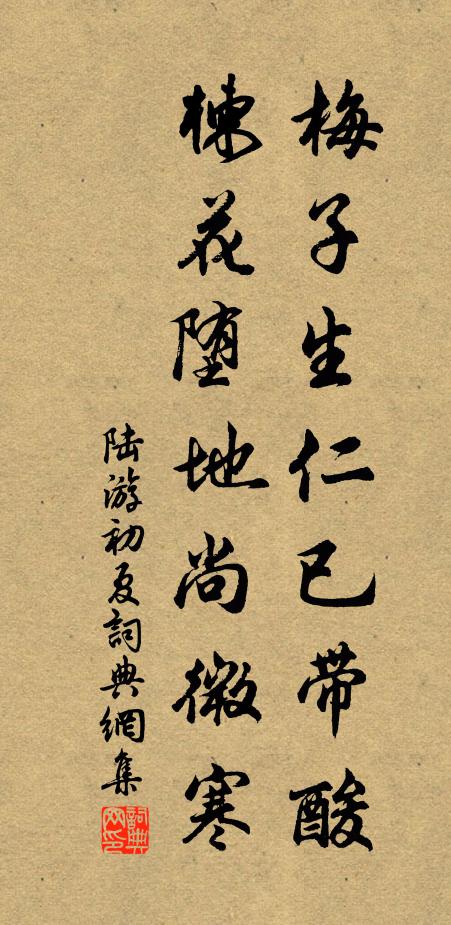 梅子生仁已带酸
楝花堕地尚微寒
陆游初夏詞典網集
詞典网印